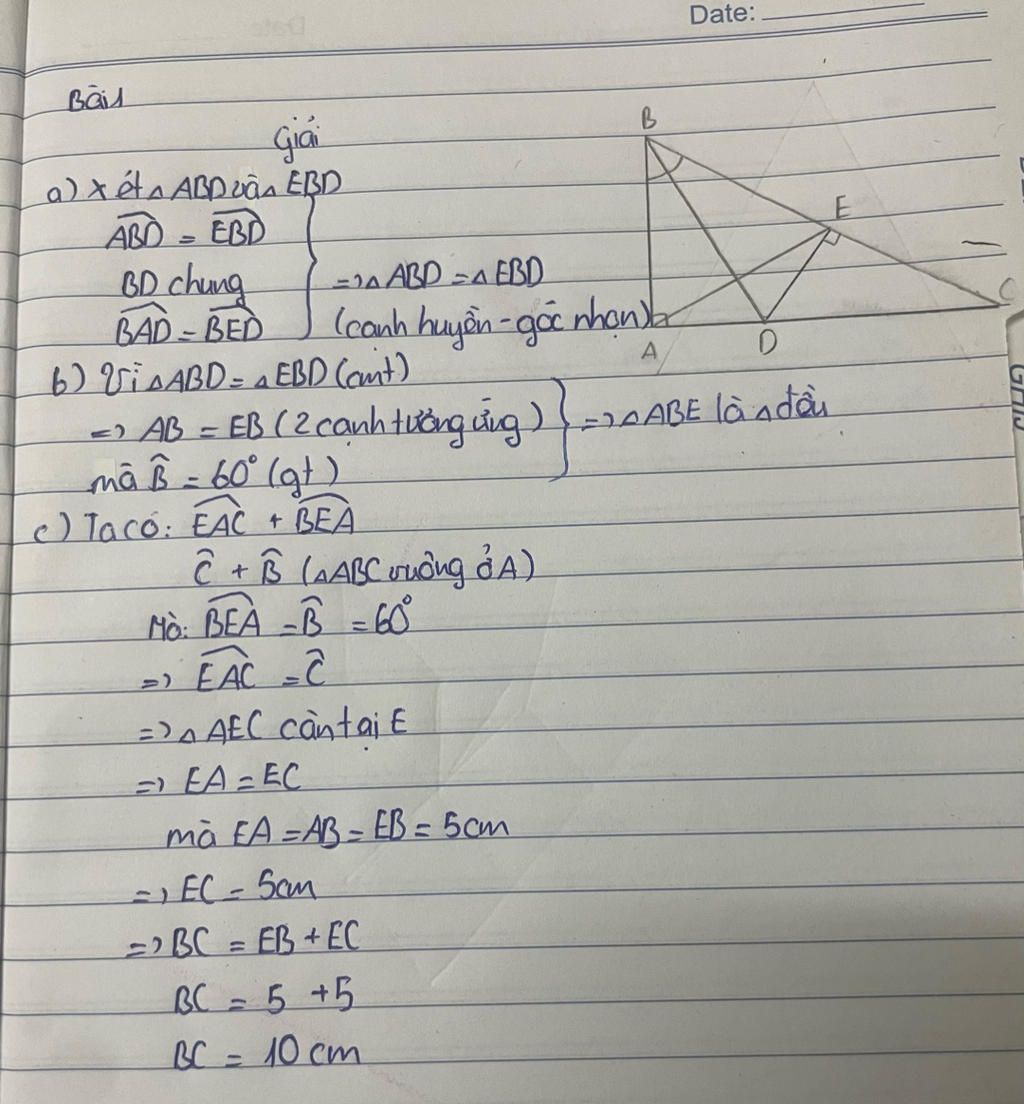 Date:
Bài 1
Giải
a) Xét △ABD và △EBD
ABD̂ = EBD̂
BD chung
BAD̂ = BED̂
=> △ABD = △EBD
(cạnh huyền - góc nhọn)
b) Vì △ABD = △EBD (cmt)
=> AB = EB (2 cạnh tương ứng)
mà B̂ = 60° (gt)
=> △ABE là △ đều
c) Ta có: EAĈ + BEÂ
Ĉ + B̂ (△ABC vuông ở A)
Mà: BEÂ = B̂ = 60°
=> EAĈ = Ĉ
=> △AEC cân tại E
=> EA = EC
mà EA = AB = EB = 5cm
=> EC = 5cm
=> BC = EB + EC
BC = 5 + 5
BC = 10 cm
B
E
C
A
D